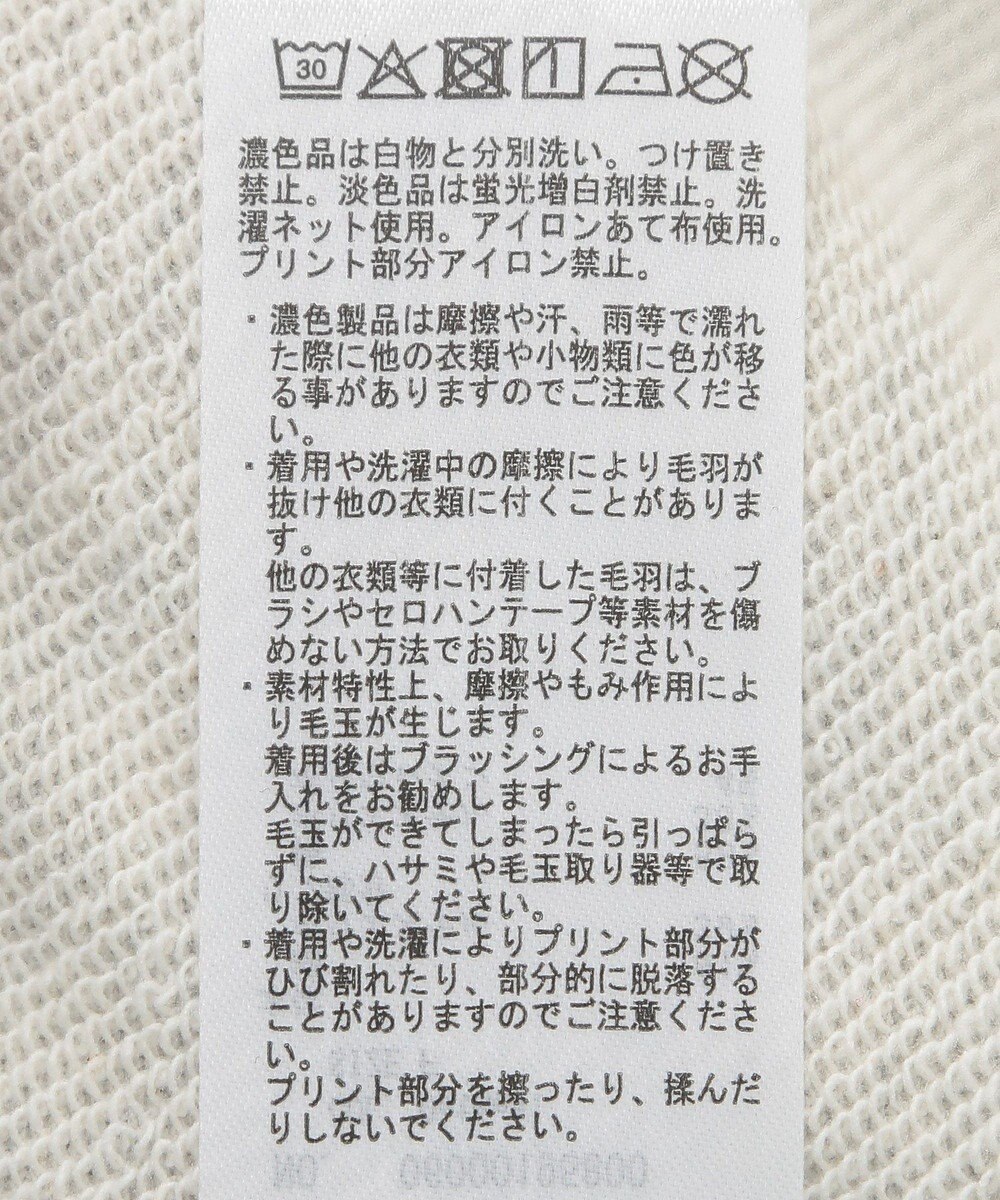 30
濃色品は白物と分別洗い。つけ置き
禁止。淡色品は蛍光増白剤禁止。洗
濯ネット使用。アイロンあて布使用。
プリント部分アイロン禁止。
・濃色製品は摩擦や汗、雨等で濡れ
た際に他の衣類や小物類に色が移
る事がありますのでご注意くださ
い。
・着用や洗濯中の摩擦により毛羽が
抜け他の衣類に付くことがありま
す。
他の衣類等に付着した毛羽は、ブ
ラシやセロハンテープ等素材を傷
めない方法でお取りください。
・素材特性上、摩擦やもみ作用によ
り毛玉が生じます。
着用後はブラッシングによるお手
入れをお勧めします。
毛玉ができてしまったら引っぱら
ずに、ハサミや毛玉取り器等で取
り除いてください。
・着用や洗濯によりプリント部分が
ひび割れたり、部分的に脱落する
ことがありますのでご注意くださ
い。
プリント部分を擦ったり、揉んだ
りしないでください。